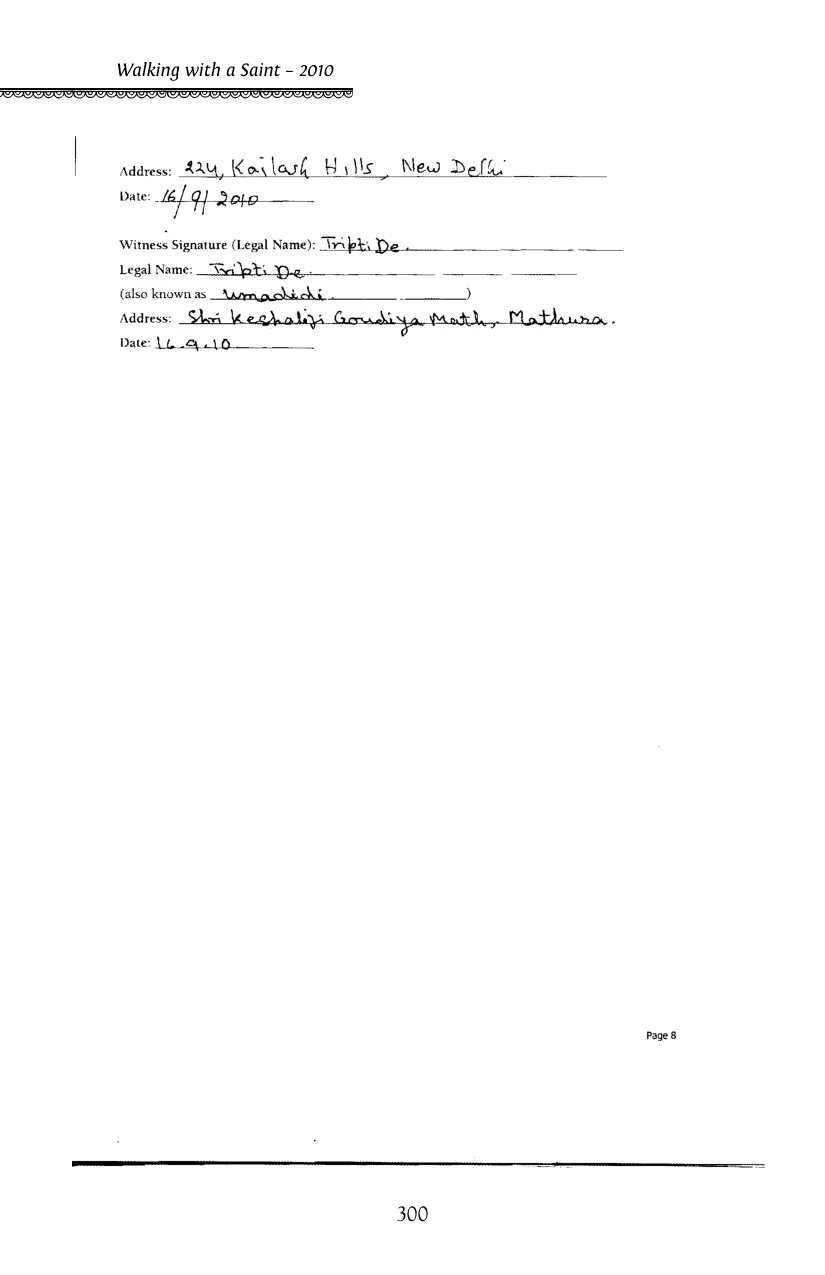 Walking with a Saint – 2010
Address: 224, Kailash Hills, New Delhi
Date: 16/9/2010
Witness Signature (Legal Name): Tripti De.
Legal Name: Tripti De.
(also known as Umadidi. )
Address: Shri Keshabji Goudiya Math, Mathura.
Date: 16.9.10
Page 8
300